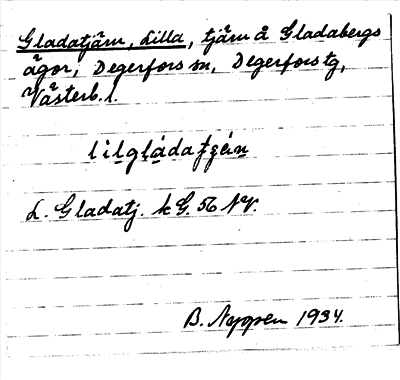 Gladatjärn, Lilla, tjärn å Gladabergs
ägor, Degerfors sn, Degerfors tg,
Västerb. l.
L. Gladatj. k G. 56 NV.
B. Nyqvist 1934.